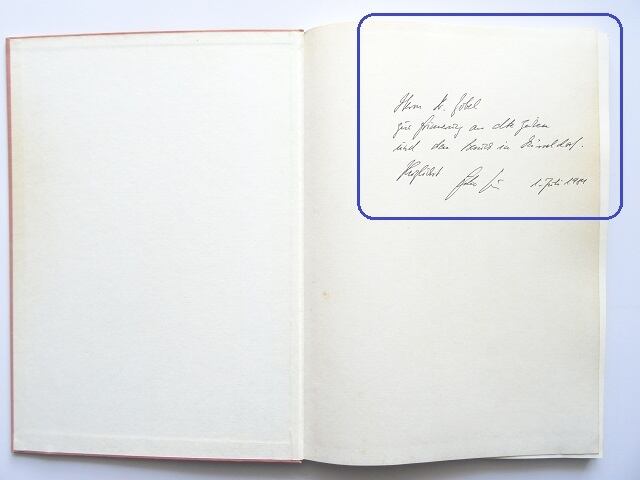 Herrn K. Göbel
zur Erinnerung an alte Zeiten
und den Besuch in Düsseldorf.
Herzlichst 1. Juli 1981